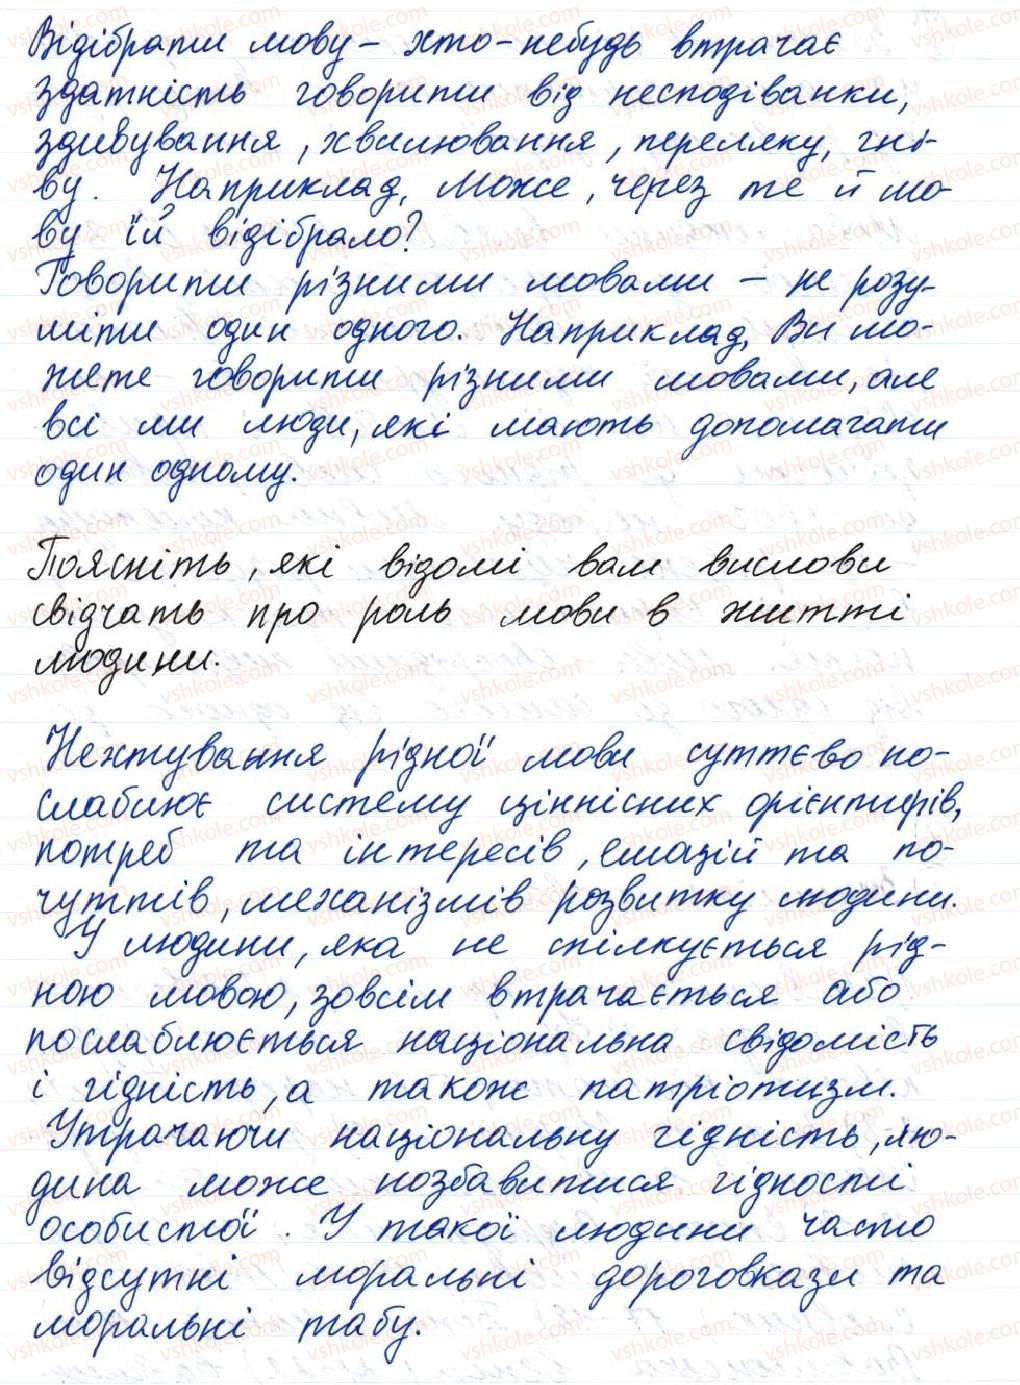 Відібрати мову – хто-небудь втрачає
здатність говорити від несподіванки,
здивування, хвилювання, переляку, гні-
ву. Наприклад, Може, через те й мо-
ву їй відібрало?
Говорити різними мовами – не розу-
міти один одного. Наприклад, Ви мо-
жете говорити різними мовами, але
всі ми люди, які мають допомагати
один одному.
Поясніть, які відомі вам вислови
свідчать про роль мови в житті
людини.
Нехтування рідної мови суттєво по-
слаблює систему ціннісних орієнтирів,
потреб та інтересів, емоцій та по-
чуттів, механізмів розвитку людини.
У людини, яка не спілкується рід-
ною мовою, зовсім втрачається або
послаблюється національна свідомість
і гідність, а також патріотизм.
Утрачаючи національну гідність, лю-
дина може позбавитися гідності
особистої. У такої людини часто
відсутні моральні дороговкази та
моральні табу.